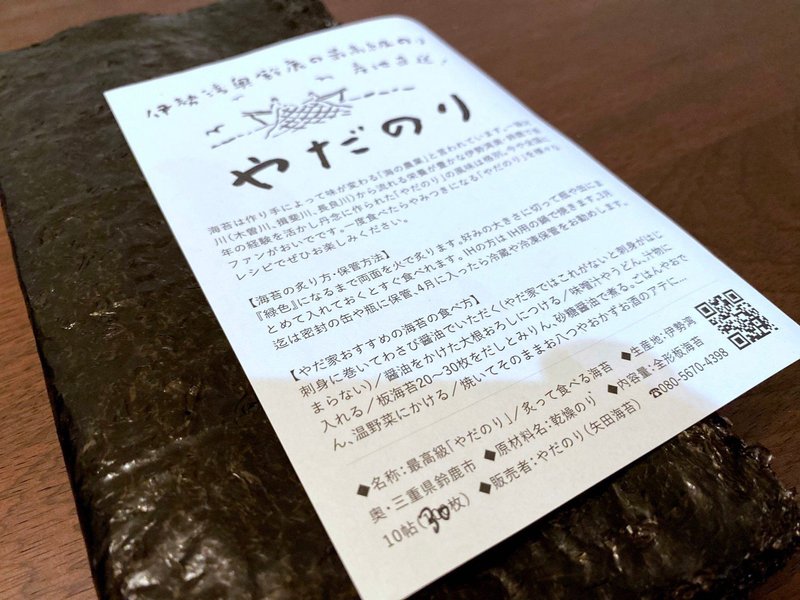 伊勢湾奥鈴鹿の最高級のり
産地直送
やだのり
海苔は作り手によって味が変わる「海の農業」と言われています。一等
川(木曽川、揖斐川、長良川)から流れる栄養が豊かな伊勢湾奥・鈴鹿で
年の経験を活かし丹念に作られた「やだのり」の風味は格別。今や全国に
ファンがおいでです。一度食べたらやみつきになる「やだのり」を様々な
レシピでぜひお楽しみください。
【海苔の炙り方・保管方法】
『緑色』になるまで両面を火で炙ります。好みの大きさに切って瓶や缶にま
とめて入れておくとすぐ食べれます。IHの方はIH用の鍋で焼きます。3月
迄は密封の缶や瓶に保管、4月に入ったら冷蔵や冷凍保管をお勧めします。
【やだ家おすすめの海苔の食べ方】
刺身に巻いてわさび醤油でいただく(やだ家ではこれがないと刺身がはじ
まらない)/醤油をかけた大根おろしにつける/味噌汁やうどん、汁物に
入れる/板海苔20〜30枚をだしとみりん、砂糖醤油で煮る。ごはんやおで
ん、温野菜にかける/焼いてそのままお八つやおかずお酒のアテに…
◆名称:最高級「やだのり」/炙って食べる海苔 ◆生産地:伊勢湾
奥・三重県鈴鹿市 ◆原材料名:乾燥のり ◆内容量:全形板海苔
10帖(30枚) ◆販売者:やだのり(矢田海苔) ☎080-5670-4398